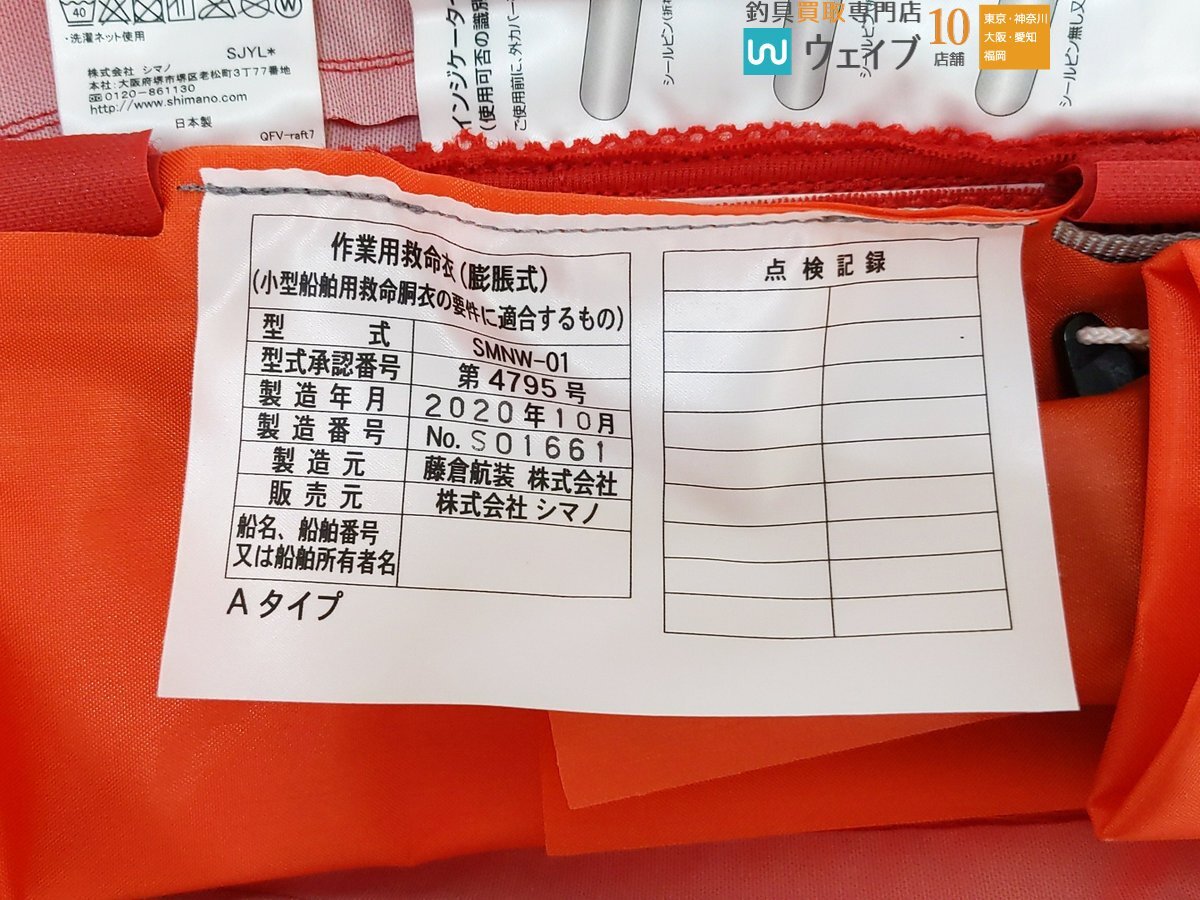 釣具買取専門店
ウェイブ
10
店舗
東京・神奈川
大阪・愛知
福岡
40
W
・洗濯ネット使用
SJYL*
株式会社 シマノ
本社：大阪府堺市堺区老松町3丁77番地
0120-861130
http://www.shimano.com
日本製
QFV-raft7
インジケーター
(使用可否の識別
ご使用前に、外カバー
シールピン
シールピン無し又
作業用救命衣(膨脹式)
(小型船舶用救命胴衣の要件に適合するもの)
型式 SMNW-01
型式承認番号 第4795号
製造年月 2020年10月
製造番号 No. S01661
製造元 藤倉航装 株式会社
販売元 株式会社 シマノ
船名、船舶番号
又は船舶所有者名
Aタイプ
点検記録